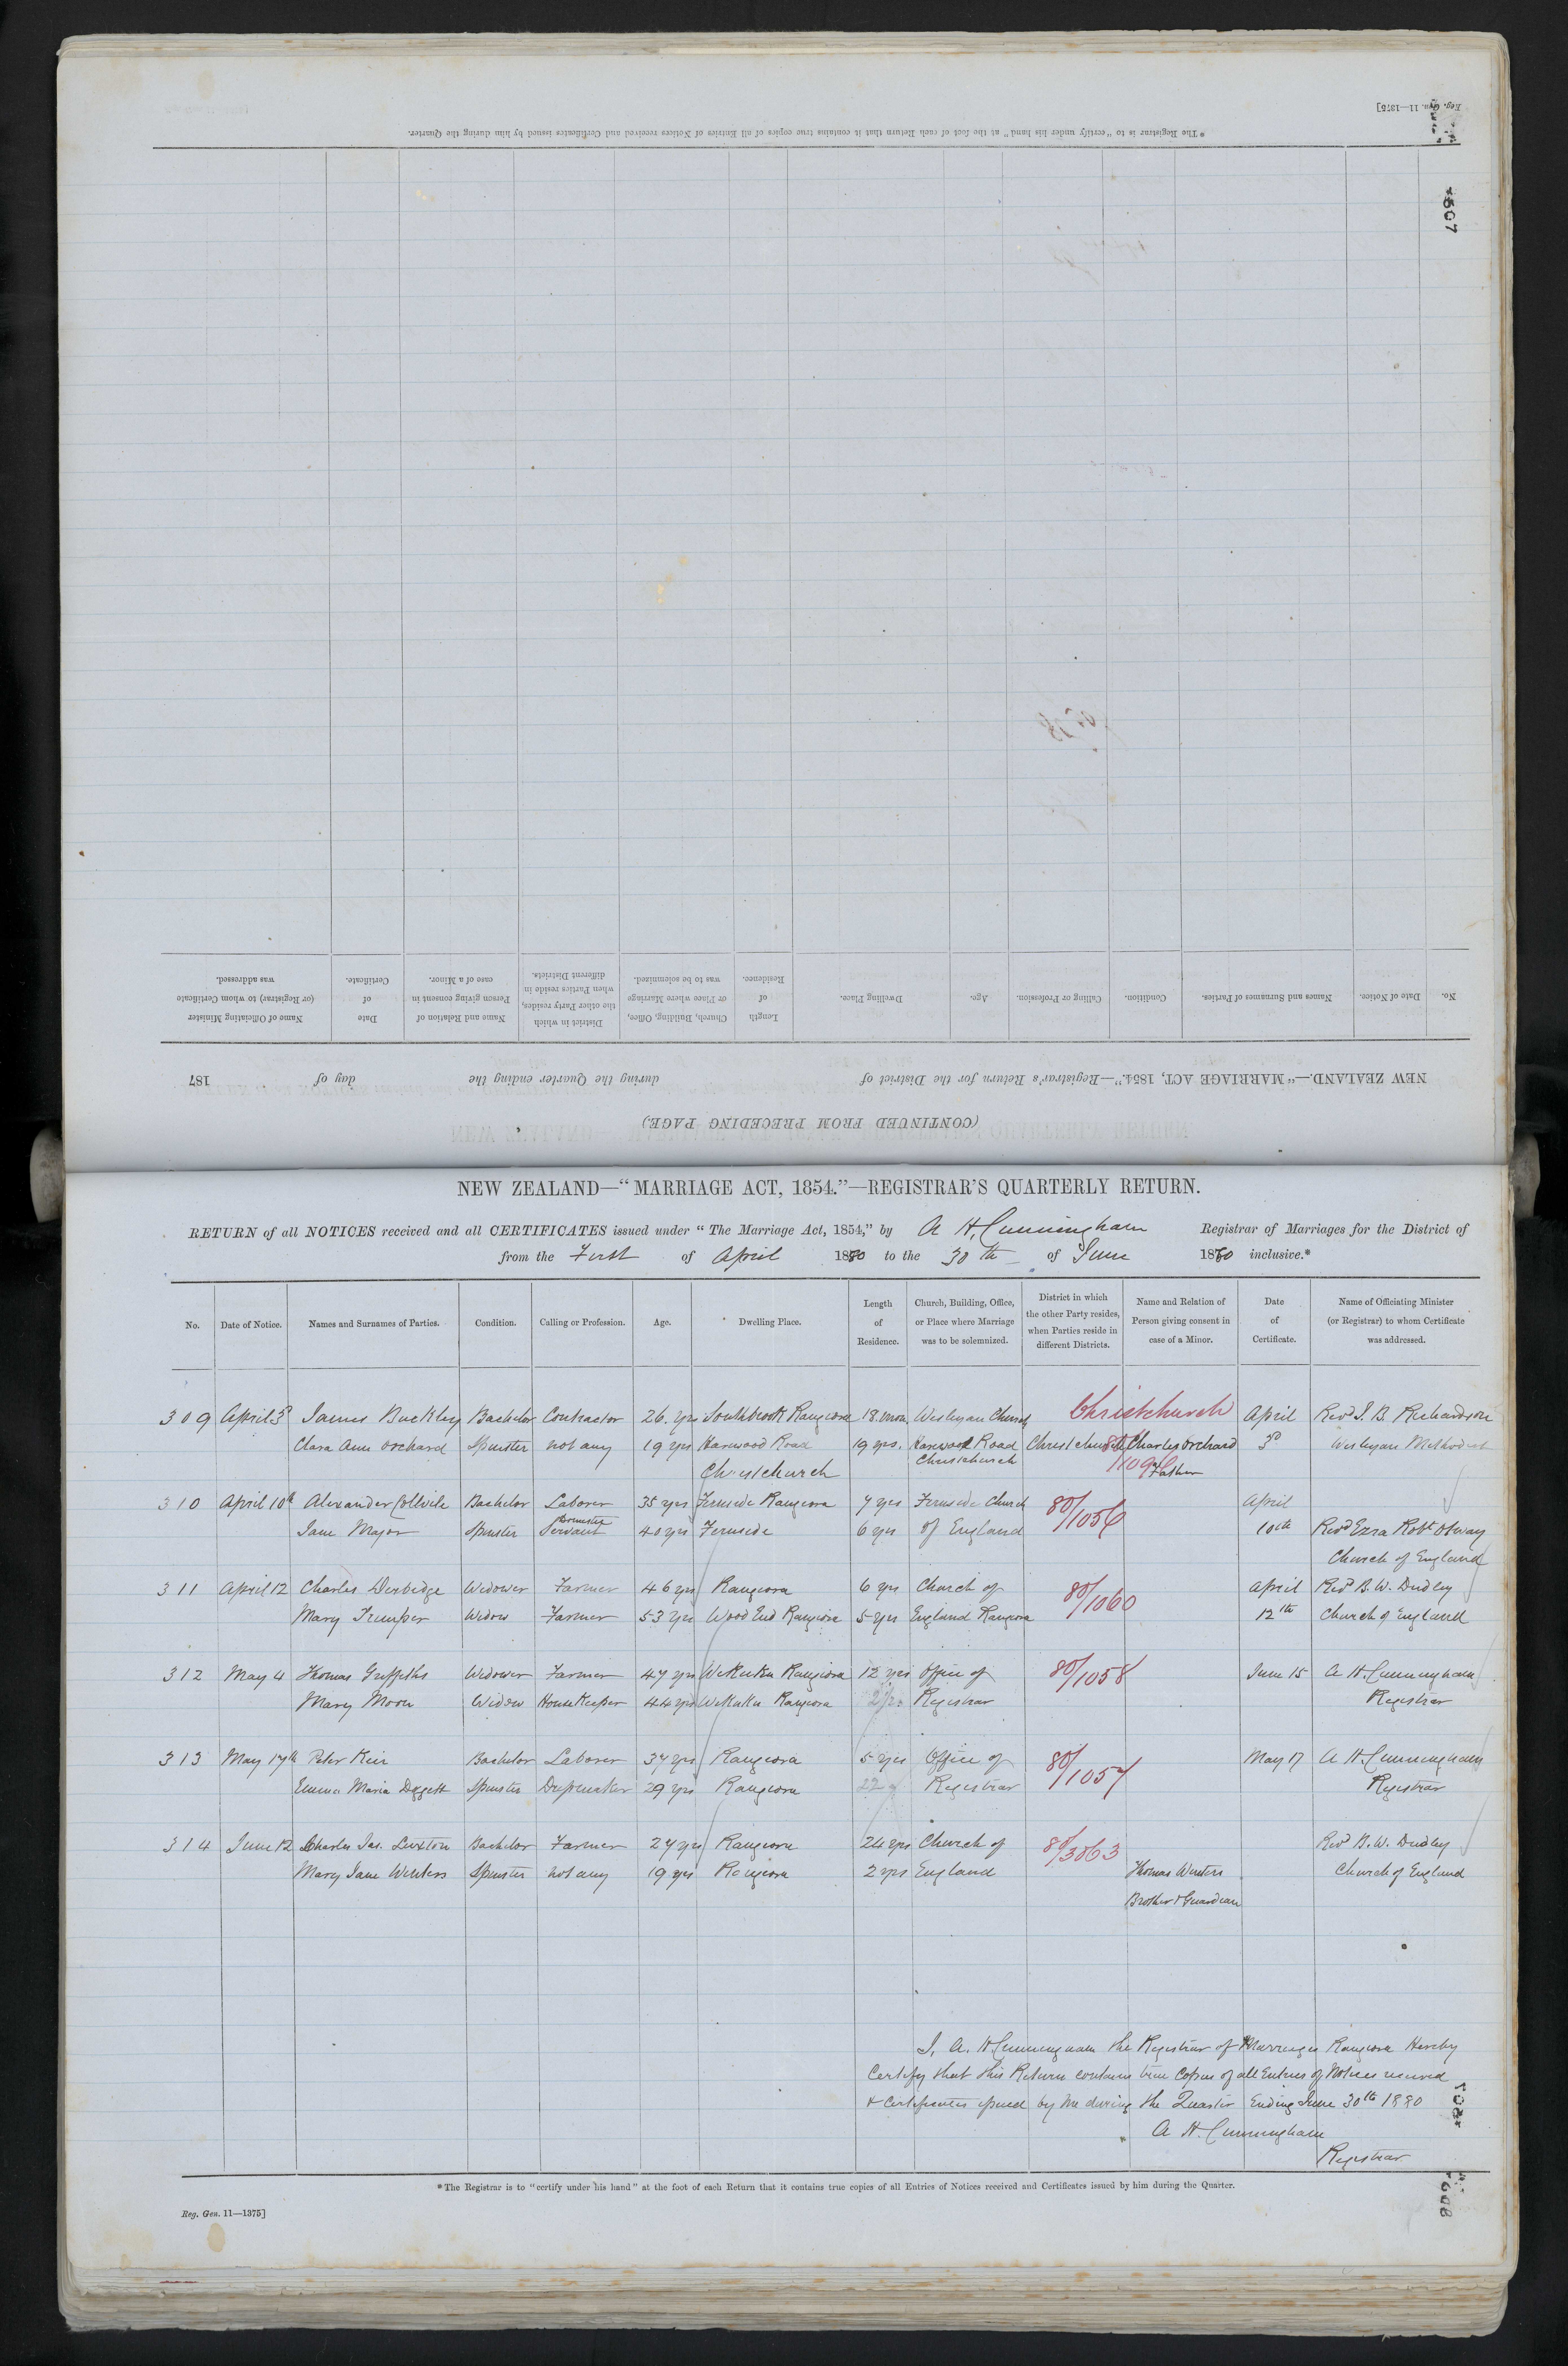 Reg. Gen. 11—1375]
* The Registrar is to "certify under his hand" at the foot of each Return that it contains true copies of all Entries of Notices received and Certificates issued by him during the Quarter.
No. Date of Notice. Names and Surnames of Parties. Condition. Calling or Profession. Age. Dwelling Place. Length of Residence. Church, Building, Office, or Place where Marriage was to be solemnized. District in which the other Party resides, when Parties reside in different Districts. Name and Relation of Person giving consent in case of a Minor. Date of Certificate. Name of Officiating Minister (or Registrar) to whom Certificate was addressed.
NEW ZEALAND.—"MARRIAGE ACT, 1854."—Registrar's Return for the District of during the Quarter ending the day of 187
(CONTINUED FROM PRECEDING PAGE.)
NEW ZEALAND—"MARRIAGE ACT, 1854."—REGISTRAR'S QUARTERLY RETURN.
RETURN of all NOTICES received and all CERTIFICATES issued under "The Marriage Act, 1854," by A H Cunningham Registrar of Marriages for the District of
from the First of April 1880 to the 30th of June 1880 inclusive.*
No. Date of Notice. Names and Surnames of Parties. Condition. Calling or Profession. Age. Dwelling Place. Length of Residence. Church, Building, Office, or Place where Marriage was to be solemnized. District in which the other Party resides, when Parties reside in different Districts. Name and Relation of Person giving consent in case of a Minor. Date of Certificate. Name of Officiating Minister (or Registrar) to whom Certificate was addressed.
309 April 3d James Buckley Bachelor Contractor 26 yrs Southbrook Rangiora 18 mon Wesleyan Church Christchurch April Revd J. B. Richardson
Clara Ann Orchard Spinster not any 19 yrs Harewood Road 19 yrs. Harewood Road Christchurch Charles Orchard 3d Wesleyan Methodist
Christchurch Christchurch Father
310 April 10th Alexander Collvile Bachelor Laborer 35 yrs Fernside Rangiora 7 yrs Fernside Church 80/1056 April
Jane Major Spinster Domestic Servant 40 yrs Fernside 6 yrs of England 10th Revd Ezra Robt Otway
Church of England
311 April 12 Charles Derbidge Widower Farmer 46 yrs Rangiora 6 yrs Church of 80/1060 April Revd B. W. Dudley
Mary Trumper Widow Farmer 53 yrs Wood End Rangiora 5 yrs England Rangiora 12th Church of England
312 May 4 Thomas Griffiths Widower Farmer 47 yrs Waikuku Rangiora 12 yrs Office of 80/1058 June 15 A H. Cunningham
Mary Moon Widow HouseKeeper 44 yrs Waikuku Rangiora Registrar Registrar
313 May 17th Peter Keir Bachelor Laborer 37 yrs Rangiora 5 yrs Office of 80/1057 May 17 A H. Cunningham
Emma Maria Doggett Spinster Dressmaker 29 yrs Rangiora Registrar Registrar
314 June 12 Charles Jas. Luxton Bachelor Farmer 27 yrs Rangiora 24 yrs Church of 80/3063 Revd B. W. Dudley
Mary Jane Winters Spinster not any 19 yrs Rangiora 2 yrs England Thomas Winters Church of England
Brother & Guardian
I, A. H Cunningham the Registrar of Marriages Rangiora Hereby
Certify that this Return contains true Copies of all Entries of Notices received
& Certificates issued by me during the Quarter Ending June 30th 1880
A H. Cunningham
Registrar
* The Registrar is to "certify under his hand" at the foot of each Return that it contains true copies of all Entries of Notices received and Certificates issued by him during the Quarter.
Reg. Gen. 11—1375]